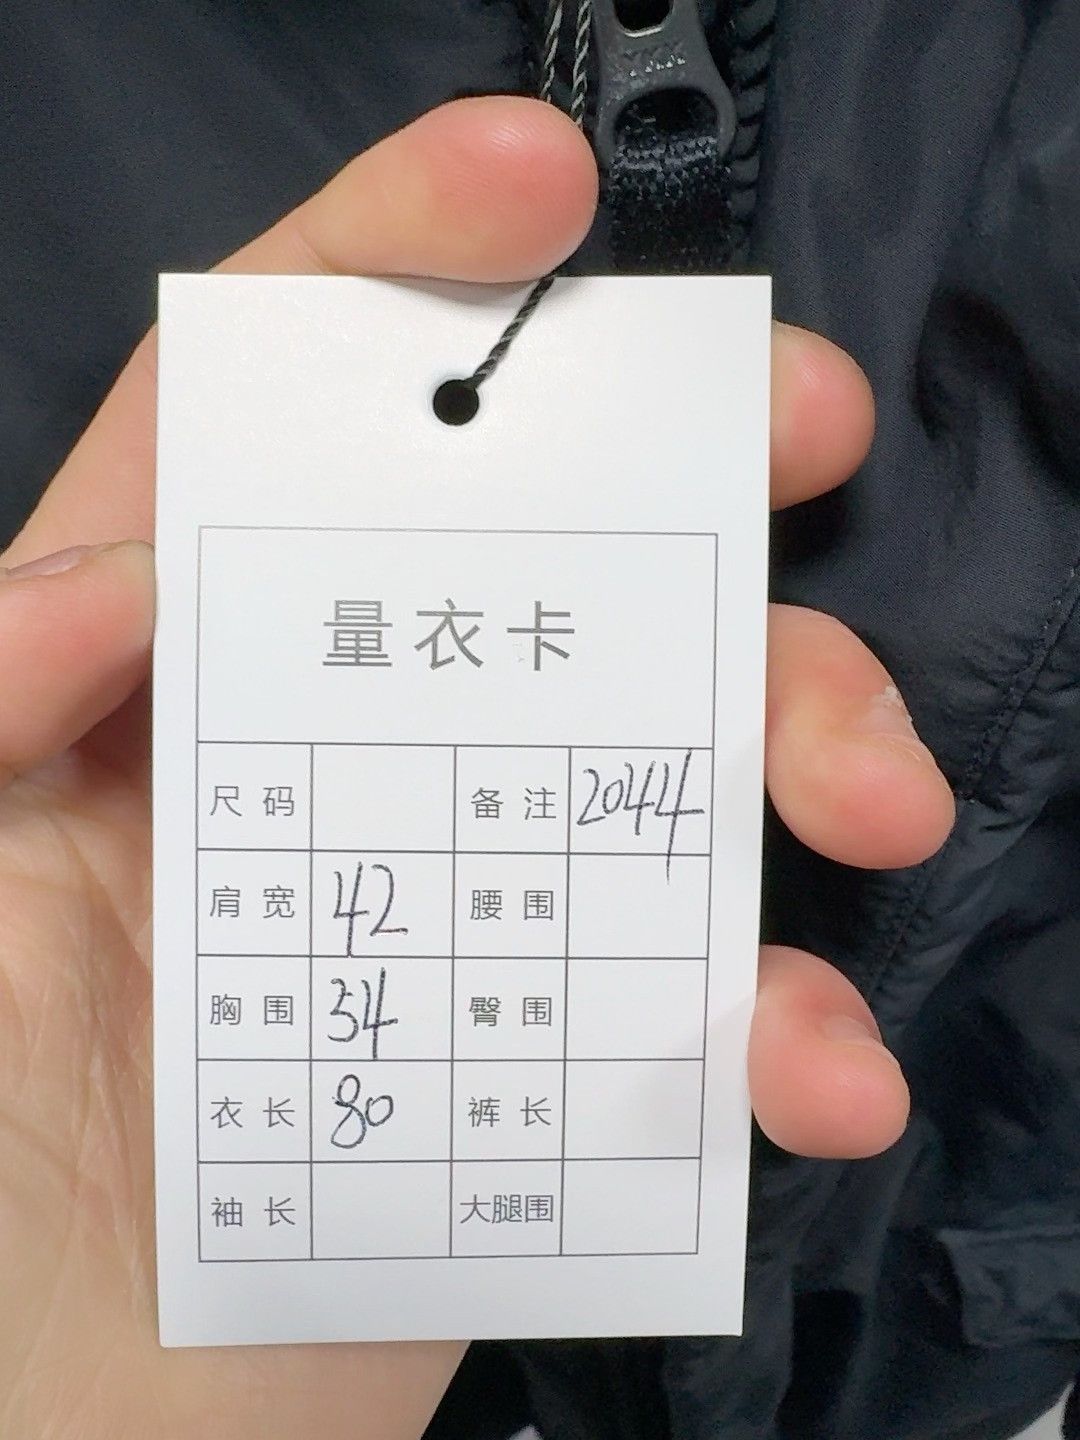 量衣卡
尺码 备注 2044
肩宽 42 腰围
胸围 54 臀围
衣长 80 裤长
袖长 大腿围